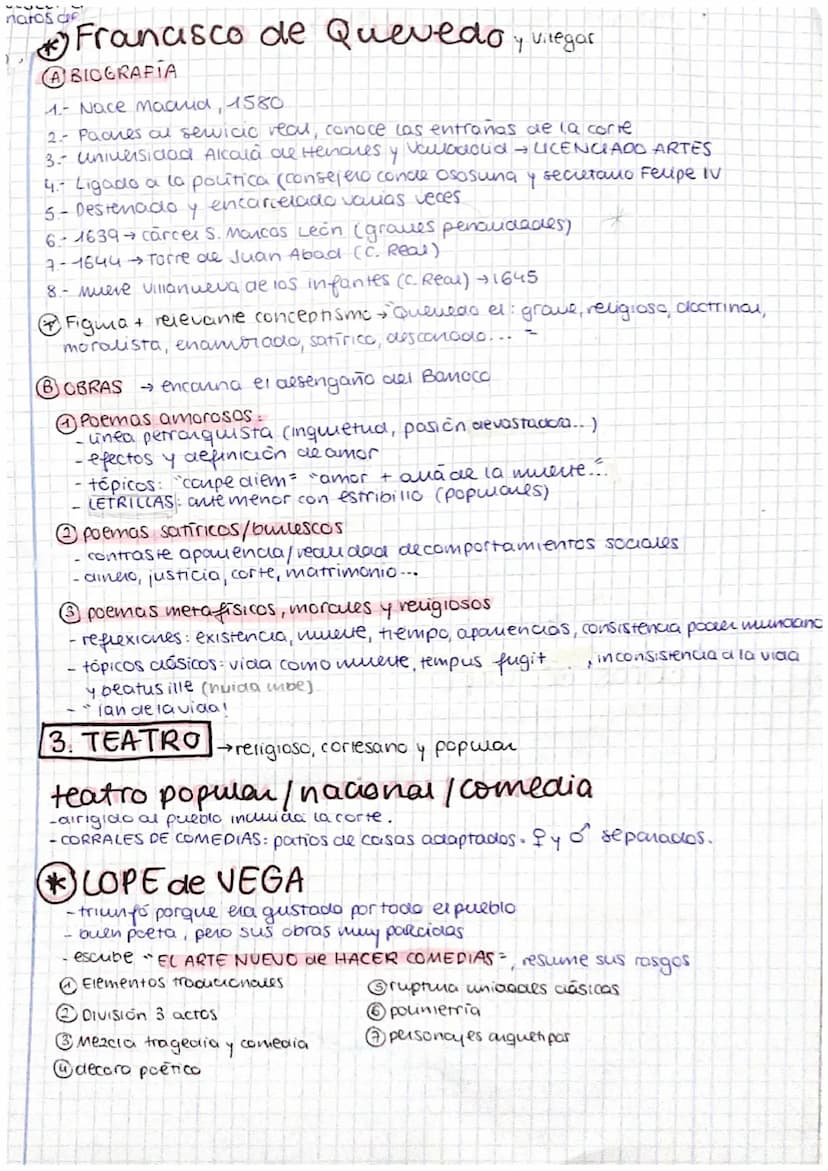 natos de
* Francisco de Quevedo y Villegas
A BIOGRAFÍA
1.- Nace Madrid, 1580
2.- Padres al servicio real, conoce las entrañas de la corte
3.- Universidad Alcalá de Henares y Valladolid → LICENCIADO ARTES
4.- Ligado a la política (consejero conde Ososuna y secretario Felipe IV
5.- Desterrado y encarcelado varias veces
6.- 1639 → cárcel S. Marcos León (graves penalidades)
7.- 1644 → Torre de Juan Abad (C. Real)
8.- Muere Villanueva de los infantes (C. Real) → 1645
* Figura + relevante conceptismo → "Quevedo el: grave, religioso, doctrinal,
moralista, enamorado, satírico, descarado... "
B OBRAS → encarna el desengaño del Barroco
1 Poemas amorosos:
- línea petrarquista (inquietud, pasión devastadora...)
- efectos y definición de amor
- tópicos: "carpe diem" "amor + allá de la muerte"...
- LETRILLAS: arte menor con estribillo (populares)
2 poemas satíricos/burlescos
- contraste apariencia/realidad de comportamientos sociales
- dinero, justicia, corte, matrimonio...
3 poemas metafísicos, morales y religiosos
- reflexiones: existencia, muerte, tiempo, apariencias, consistencia poder mundano
- tópicos clásicos: vida como muerte, tempus fugit , inconsistencia d la vida
y beatus ille (huida urbe)
- "¡an de la vida!
3. TEATRO → religioso, cortesano y popular
teatro popular/nacional/comedia
- dirigido al pueblo incluida la corte.
- CORRALES DE COMEDIAS: patios de casas adaptados. ♀ y ♂ separados.
* LOPE de VEGA
- triunfó porque era gustado por todo el pueblo
- buen poeta, pero sus obras muy parecidas
- escribe "EL ARTE NUEVO de HACER COMEDIAS", resume sus rasgos
1 Elementos tradicionales
2 División 3 actos
3 Mezcla tragedia y comedia
4 decoro poético
5 ruptura unidades clásicas
6 polimetría
7 personajes arquetipos